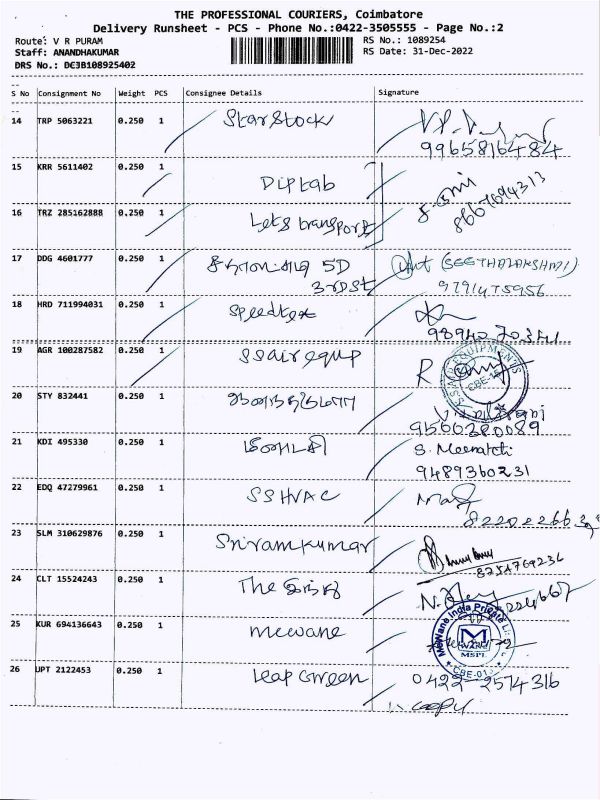 THE PROFESSIONAL COURIERS, Coimbatore
Delivery Runsheet - PCS - Phone No.:0422-3505555 - Page No.:2
Route: V R PURAM RS No.: 1089254
Staff: ANANDHAKUMAR RS Date: 31-Dec-2022
DRS No.: DCJB108925402
S No Consignment No Weight PCS Consignee Details Signature
14 TRP 5063221 0.250 1 Starstock
9965816484
15 KRR 5611402 0.250 1 Diptab
8667694313
16 TRZ 285162888 0.250 1 Lets transport
17 DDG 4601777 0.250 1 5D (SEETHALAKSHMI)
3rd St 9791475956
18 HRD 711994031 0.250 1 Speedtex
9894070341
19 AGR 100287582 0.250 1 SSairequp R
EQUIPMENTS CBE-
20 STY 832441 0.250 1
9560280089
21 KDI 495330 0.250 1 மீனாட்சி S. Meenatchi
9489360231
22 EDQ 47279961 0.250 1 SSHVAC
23 SLM 310629876 0.250 1 Sriramkumar
8254769236
24 CLT 15524243 0.250 1 The இந்து
25 KUR 694136643 0.250 1 mcwane
McWane India Private MSPL CBE-
26 UPT 2122453 0.250 1 Leap Green 0422-2574316